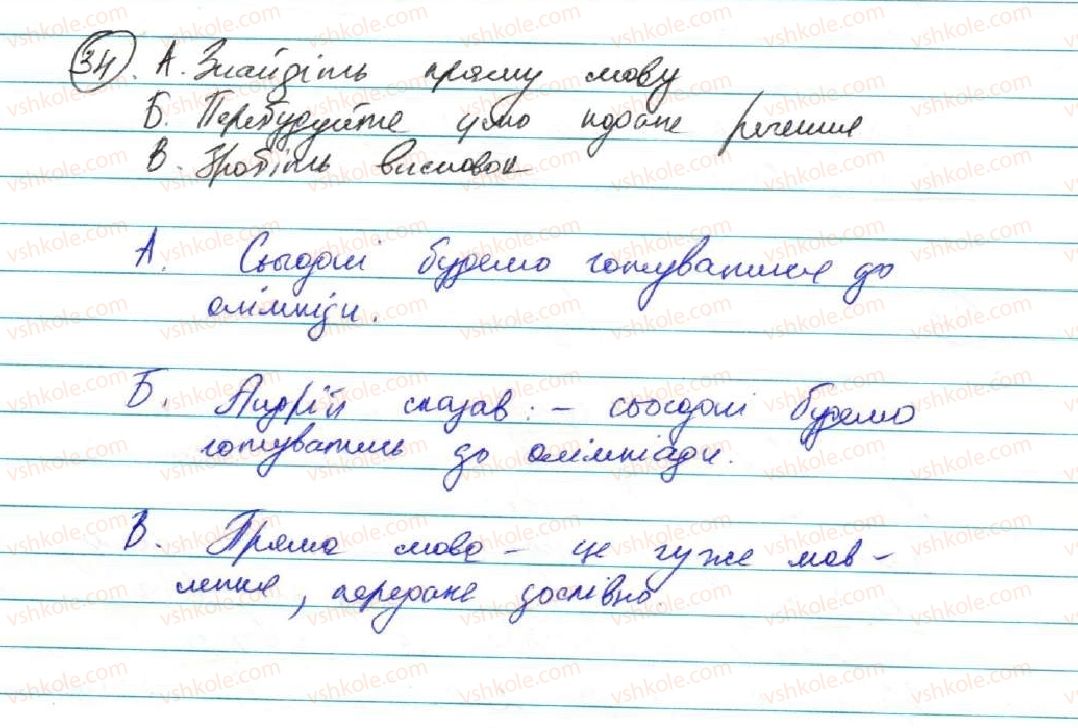 34. А. Знайдіть пряму мову
Б. Перебудуйте усно подане речення
В. Зробіть висновок
А. Сьогодні будемо готуватися до
олімпіади.
Б. Андрій сказав: – сьогодні будемо
готуватись до олімпіади.
В. Пряма мова – це чуже мов-
лення, передане дослівно.
vshkole.com